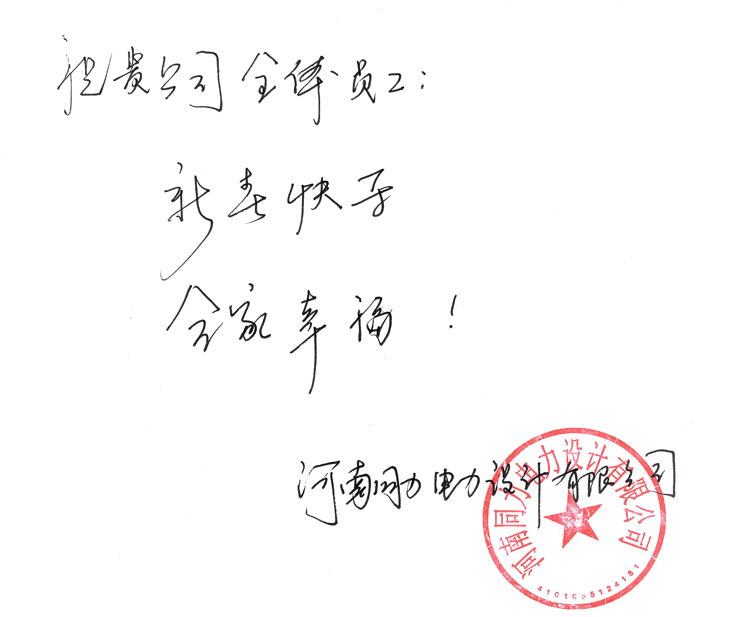 祝贵公司全体员工：
新春快乐
全家幸福！
河南同力电力设计有限公司
河南同力电力设计有限公司